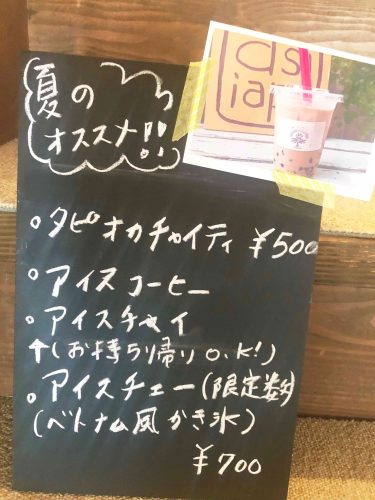 夏の
オススメ!!
。タピオカチャイティ ¥500
。アイスコーヒー
。アイスチャイ
↑(お持ち帰りO.K!)
。アイスチェー(限定数)
(ベトナム風かき氷)
¥700
asi
iap